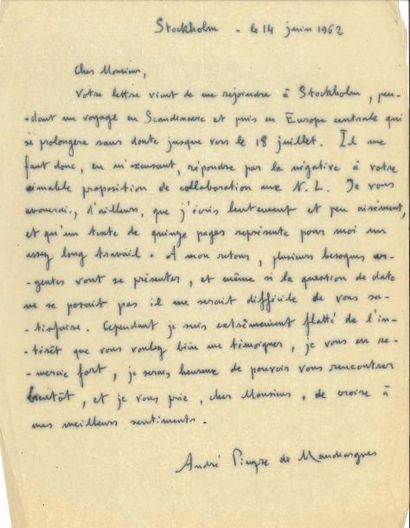 Stockholm - le 14 juin 1962
Cher Monsieur,
Votre lettre vient de me rejoindre à Stockholm, pen-
-dant un voyage en Scandinavie et puis en Europe centrale qui
se prolongera sans doute jusque vers le 18 juillet. Il me
faut donc, en m'excusant, répondre par la négative à votre
aimable proposition de collaboration aux N.L. Je vous
avouerai, d'ailleurs, que j'écris lentement et peu aisément,
et qu'un texte de quinze pages représente pour moi un
assez long travail. A mon retour, plusieurs besognes ur-
-gentes vont se présenter, et même si la question de date
ne se posait pas il me serait difficile de vous sa-
-tisfaire. Cependant je suis extrêmement flatté de l'in-
-térêt que vous voulez bien me témoigner, je vous en re-
-mercie fort, je serais heureux de pouvoir vous rencontrer
bientôt, et je vous prie, cher Monsieur, de croire à
mes meilleurs sentiments.
André Pieyre de Mandiargues